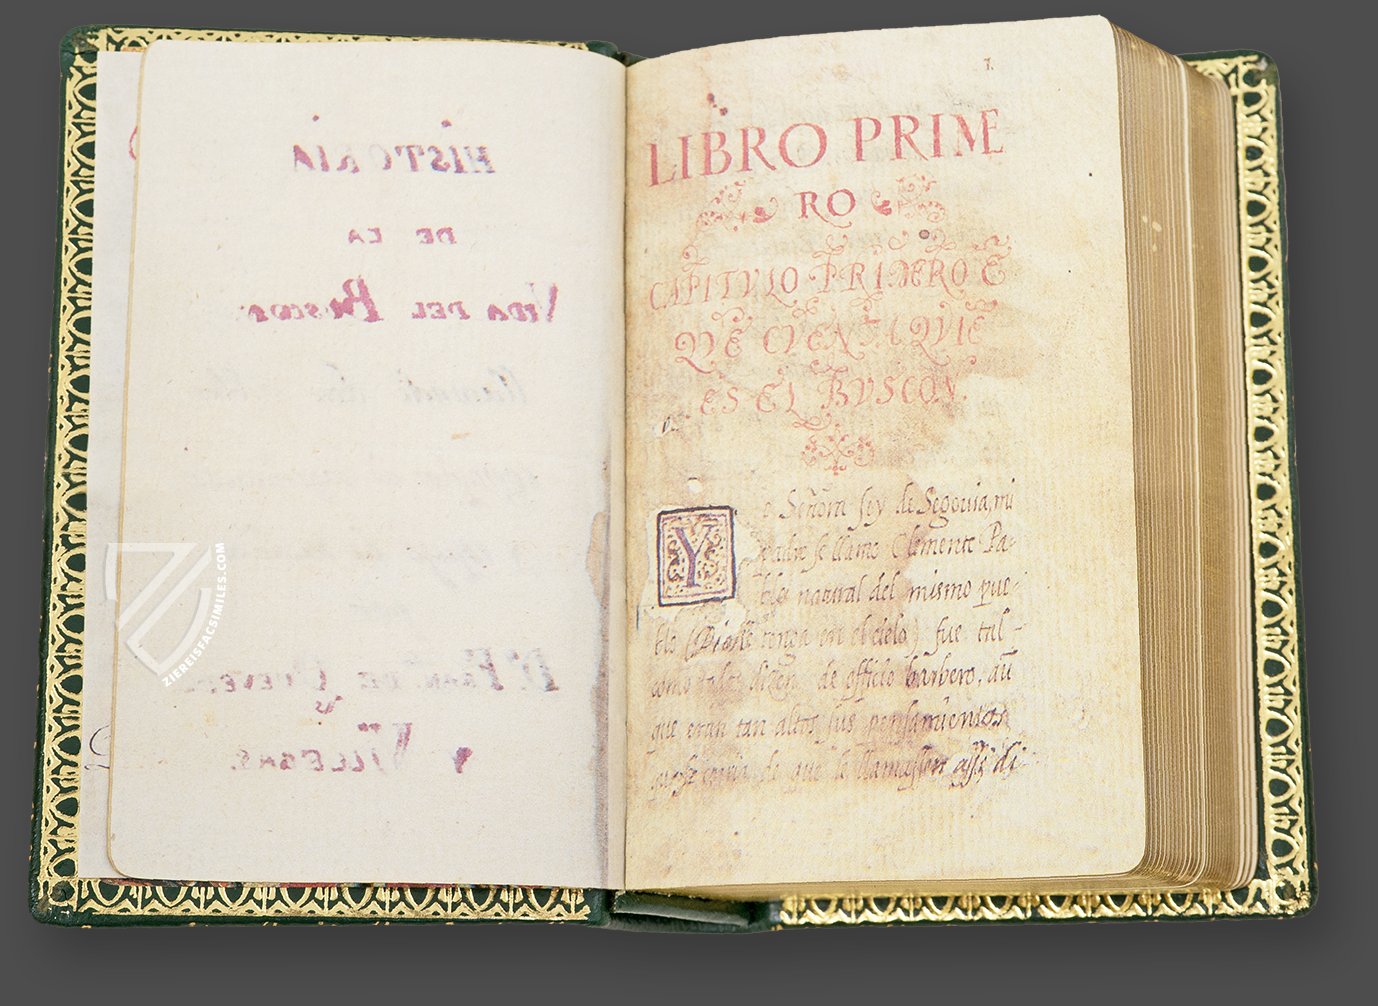 HISTORIA
DE LA
VIDA DEL BUSCON
Dn FRAN. DE QUEVEDO
Y VILLEGAS.
1.
LIBRO PRIME
RO
CAPITVLO PRIMERO E
QVE CVENTA QVIE
ES EL BVSCON.
Yo Señora soy de Segovia, mi
Padre se llamo Clemente Pa-
blo natural del mismo pue-
blo (Dios le tenga en el cielo) fue tal
como todos dizen de officio barbero, aũ
que eran tan altos sus pensamientos
que se corria de que le llamassen assi di
ZIEREISFACSIMILES.COM